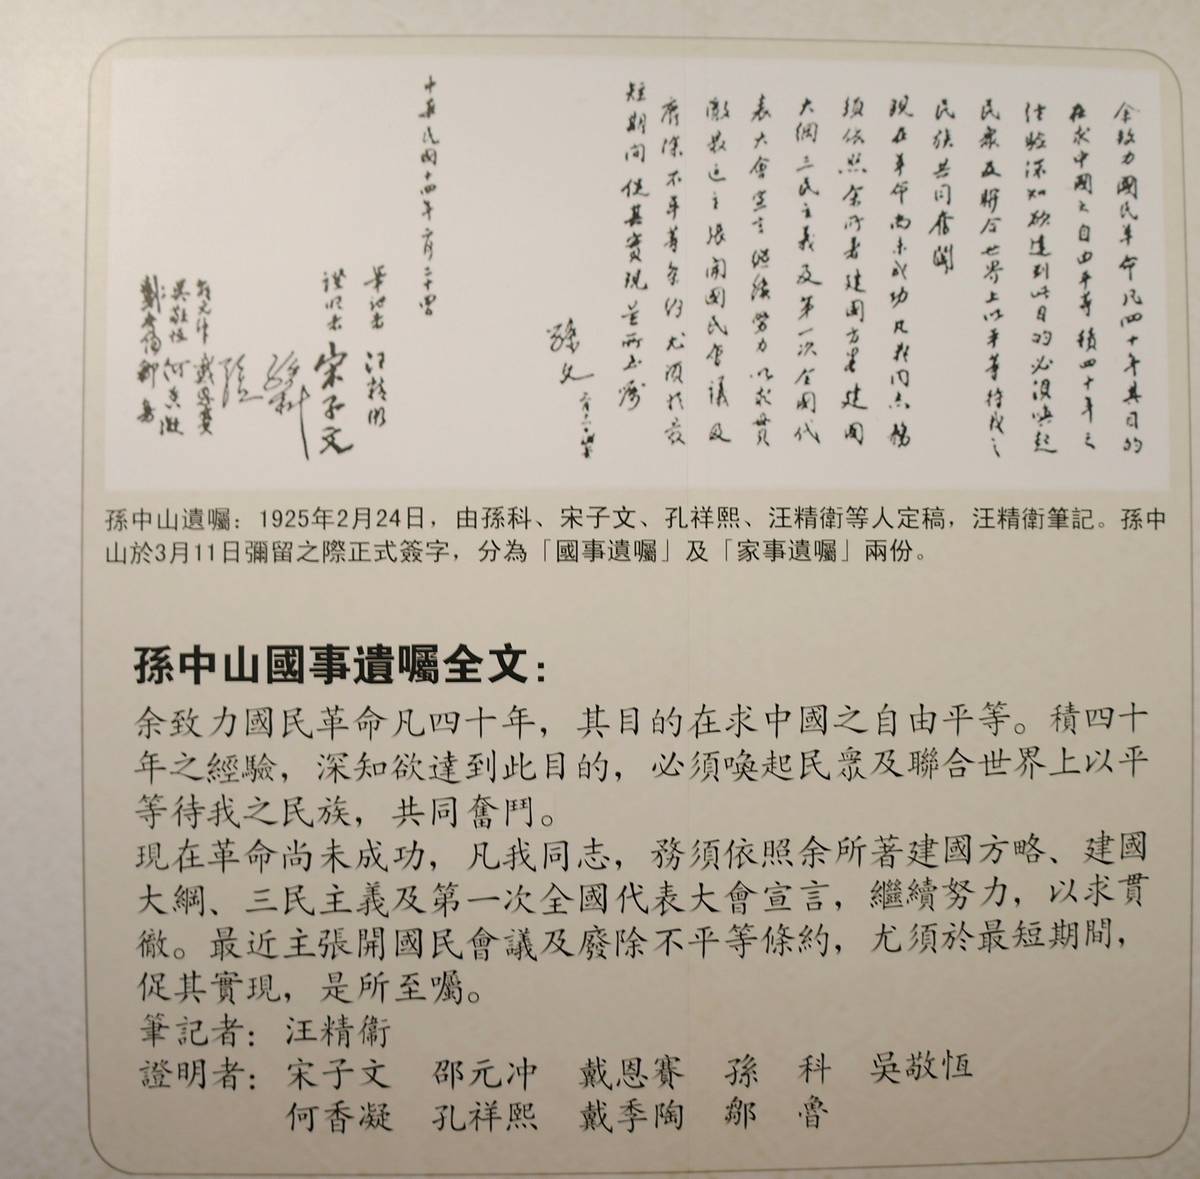 余致力國民革命凡四十年其目的
在求中國之自由平等積四十年之
經驗深知欲達到此目的必須喚起
民眾及聯合世界上以平等待我之
民族共同奮鬪
現在革命尚未成功凡我同志務
須依照余所著建國方畧建國
大綱三民主義及第一次全國代
表大會宣言繼續努力以求貫
徹最近主張開國民會議及
廢除不平等条約尤須於最
短期間促其實現是所至囑
孫文
中華民國十四年二月二十四日
筆記者 汪精衛
證明者 宋子文
孫科
戴恩賽
邵元冲
吳敬恆 何香凝
戴季陶 鄒魯
孫中山遺囑：1925年2月24日，由孫科、宋子文、孔祥熙、汪精衛等人定稿，汪精衛筆記。孫中
山於3月11日彌留之際正式簽字，分為「國事遺囑」及「家事遺囑」兩份。
孫中山國事遺囑全文：
余致力國民革命凡四十年，其目的在求中國之自由平等。積四十
年之經驗，深知欲達到此目的，必須喚起民眾及聯合世界上以平
等待我之民族，共同奮鬥。
現在革命尚未成功，凡我同志，務須依照余所著建國方略、建國
大綱、三民主義及第一次全國代表大會宣言，繼續努力，以求貫
徹。最近主張開國民會議及廢除不平等條約，尤須於最短期間，
促其實現，是所至囑。
筆記者：汪精衛
證明者：宋子文 邵元冲 戴恩賽 孫 科 吳敬恆
何香凝 孔祥熙 戴季陶 鄒 魯